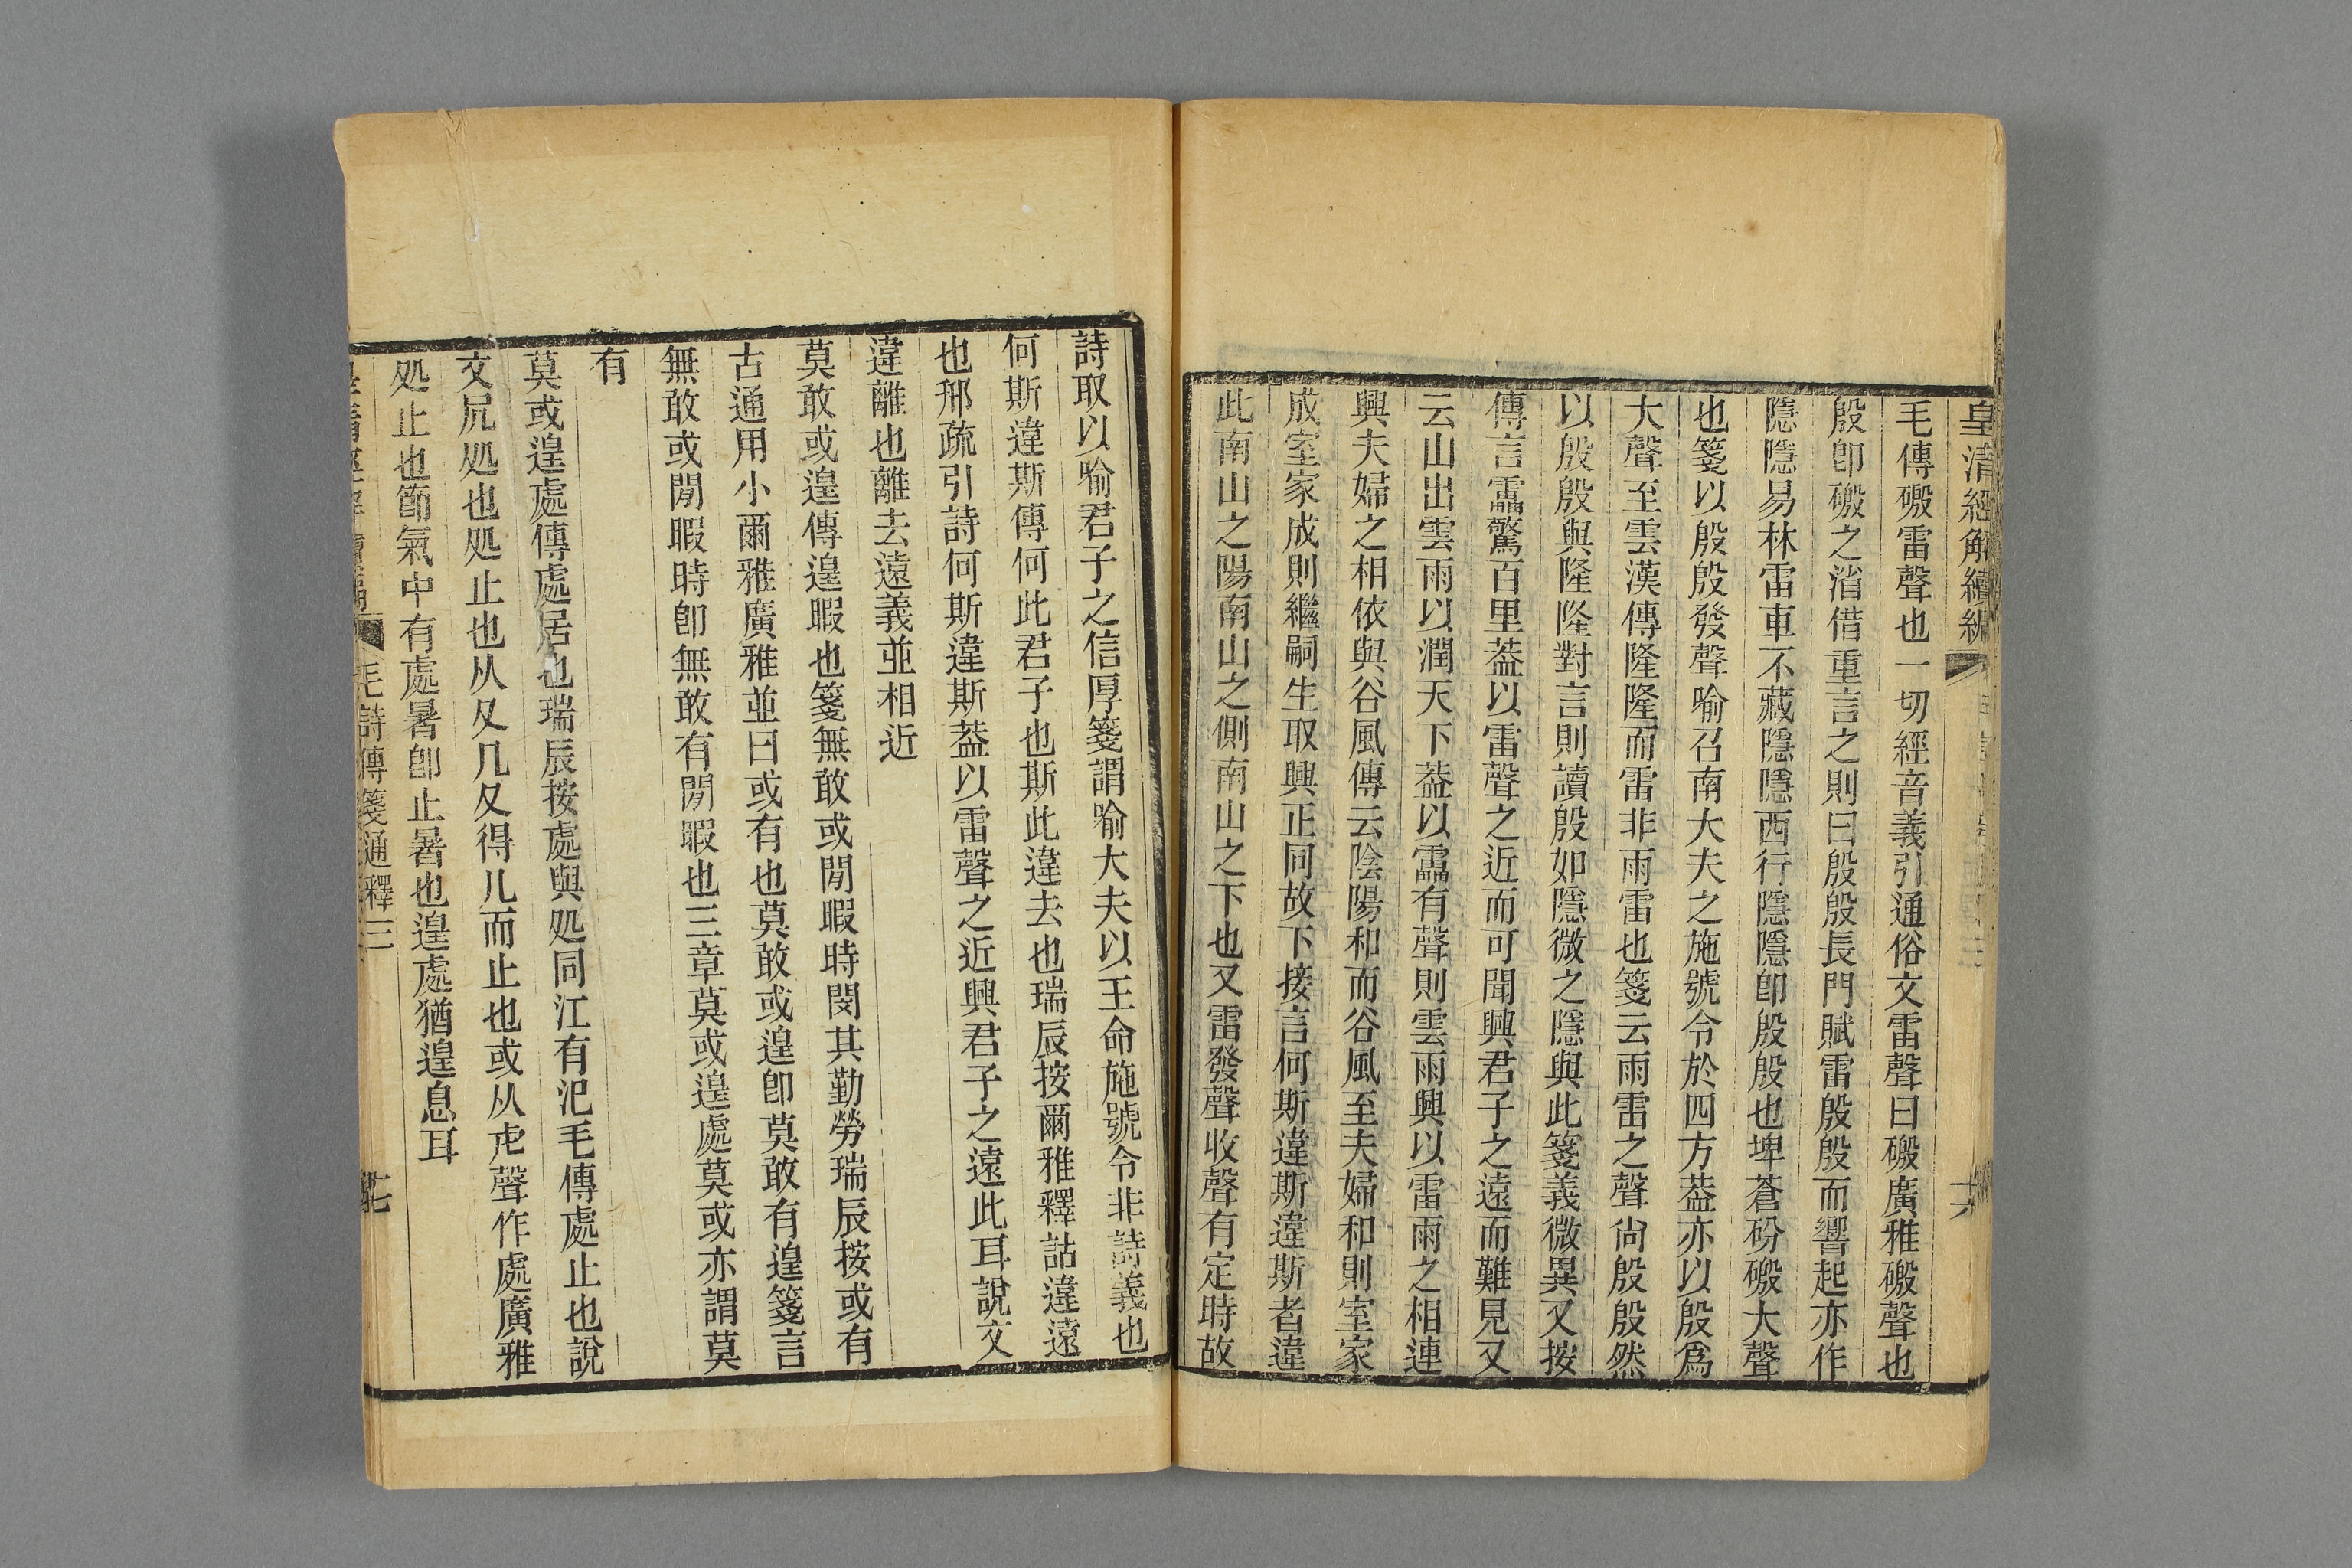 皇清經解續編
十六
毛傳磤雷聲也一切經音義引通俗文雷聲曰磤廣雅磤聲也
殷卽磤之消借重言之則曰殷殷長門賦雷殷殷而響起亦作
隱隱易林雷車不藏隱隱西行隱隱卽殷殷也埤蒼砏磤大聲
也箋以殷殷發聲喻召南大夫之施號令於四方葢亦以殷爲
大聲至雲漢傳隆隆而雷非雨雷也箋云雨雷之聲尙殷殷然
以殷殷與隆隆對言則讀殷如隱微之隱與此箋義微異又按
傳言靁驚百里葢以雷聲之近而可聞興君子之遠而難見又
云山出雲雨以潤天下葢以靁有聲則雲雨興以雷雨之相連
興夫婦之相依與谷風傳云陰陽和而谷風至夫婦和則室家
成室家成則繼嗣生取興正同故下接言何斯違斯違斯者違
此南山之陽南山之側南山之下也又雷發聲收聲有定時故
詩取以喻君子之信厚箋謂喻大夫以王命施號令非詩義也
何斯違斯傳何此君子也斯此違去也瑞辰按爾雅釋詁違遠
也邢疏引詩何斯違斯葢以雷聲之近興君子之遠此耳說文
違離也離去遠義並相近
莫敢或遑傳遑暇也箋無敢或閒暇時閔其勤勞瑞辰按或有
古通用小爾雅廣雅並曰或有也莫敢或遑卽莫敢有遑箋言
無敢或閒暇時卽無敢有閒暇也三章莫或遑處莫或亦謂莫
有
莫或遑處傳處居也瑞辰按處與処同江有汜毛傳處止也說
文尻処也処止也从夂几夂得几而止也或从虍聲作處廣雅
処止也節氣中有處暑卽止暑也遑處猶遑息耳
毛詩傳箋通釋三